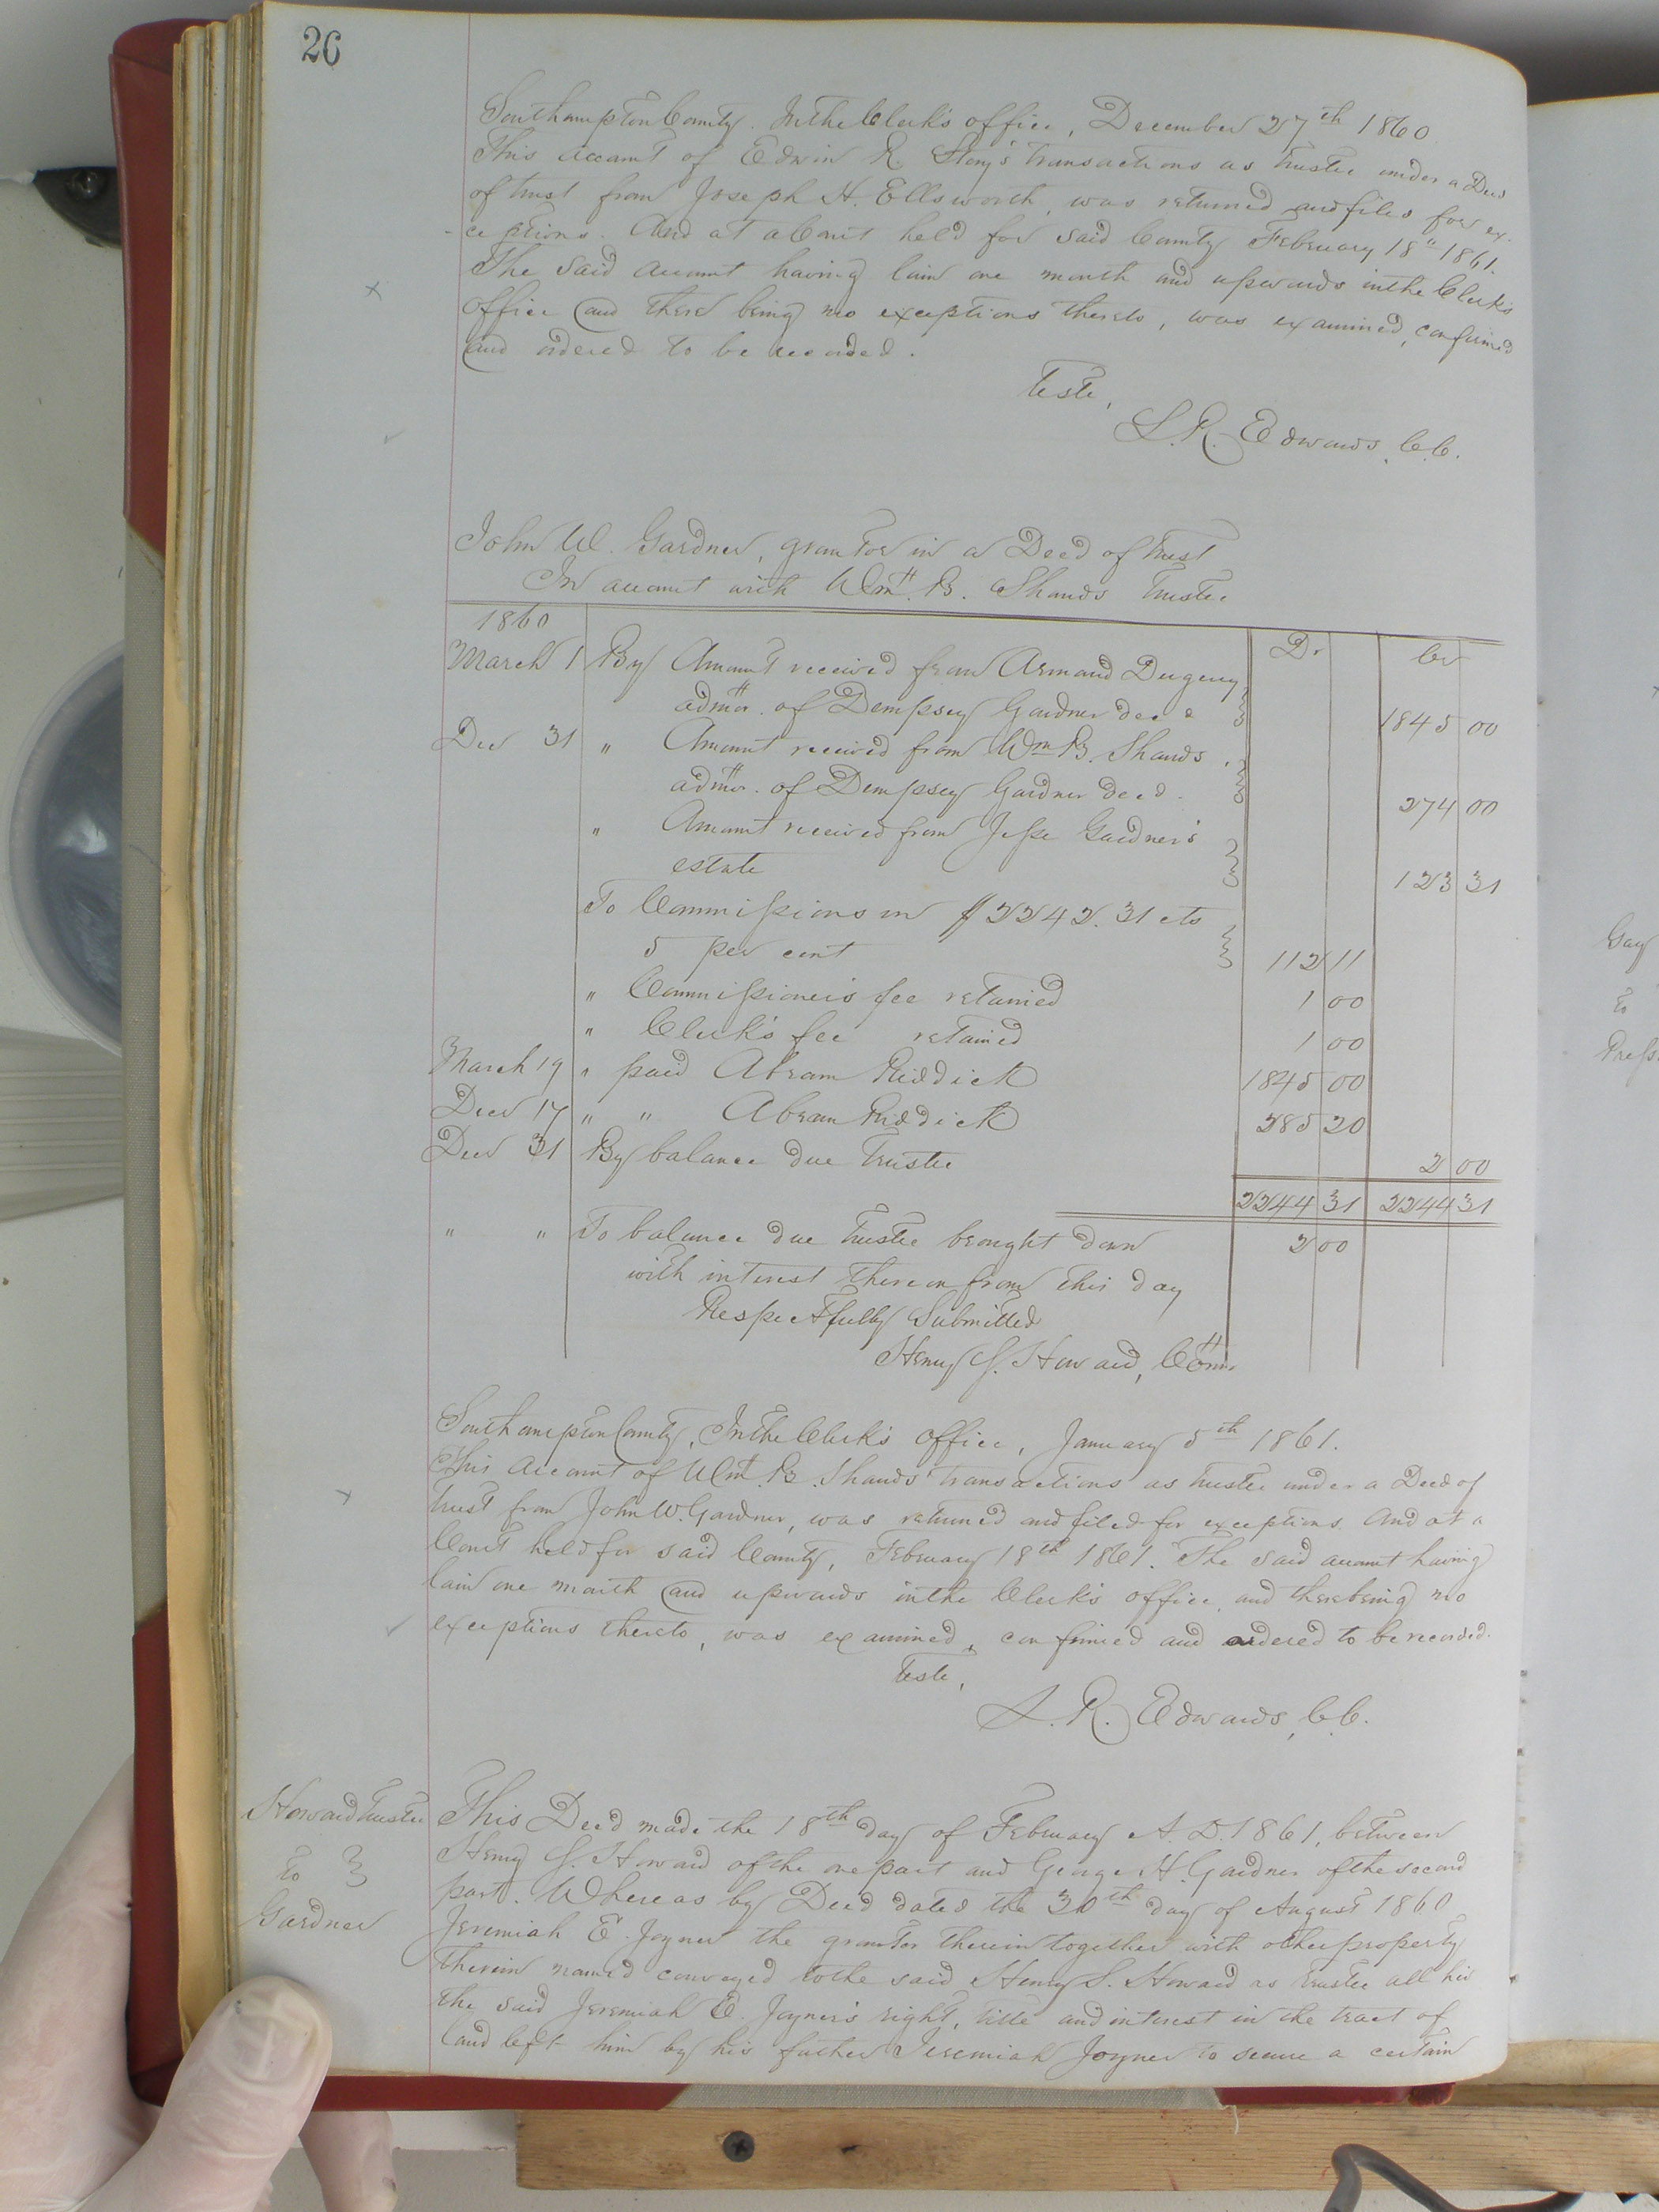 26
Southampton County. In the Clerk's office, December 27th 1860
This account of Edwin R. Story's transactions as Trustee under a Deed
of trust from Joseph H. Ellsworth, was returned and files for ex-
-ceptions. And at a Court held for said County February 18" 1861.
The said account having lain one month and upwards in the Clerk's
office and there being no exceptions thereto, was examined, confirmed
and ordered to be recorded.
Teste,
L. R. Edwards, C.C.
John W. Gardner, grantor in a Deed of Trust
In account with Wm. B. Shands Trustee
1860
Dr Cr
March 1 By Amount received from Armand
admor. of Dempsey Gardner decd 1845 00
Dec 31 " Amount received from Wm B. Shands
admor. of Dempsey Gardner decd. 274 00
" Amount received from Jesse Gardner's
estate 123 31
To Commissions on $2242.31 cts
5 per cent 112 11
" Commissioner's fee retained 1 00
" Clerk's fee retained 1 00
March 19 " paid Abram Riddick 1845 00
Dec 17 " " Abram Riddick 285 20
Dec 31 By balance due Trustee 2 00
2244 31 2244 31
" " To balance due Trustee brought down 2 00
with interest thereon from this day
Respectfully Submitted
Henry S. Howard, Comr
Southampton County, In the Clerk's office, January 5th 1861.
This Account of Wm. B. Shands' transactions as trustee under a Deed of
trust from John W. Gardner, was returned and filed for exceptions. And at a
Court held for said County, February 18th 1861. The said account having
lain one month and upwards in the Clerk's office, and there being no
exceptions thereto, was examined, confirmed and ordered to be recorded.
Teste,
L. R. Edwards, C.C.
Howard Trustee
to
Gardner
This Deed made the 18th day of February A.D. 1861, between
Henry S. Howard of the one part and George H. Gardner of the second
part. Whereas by Deed dated the 30th day of August 1860
Jeremiah E. Joyner the grantor therein together with other property
therein named conveyed to the said Henry S. Howard as trustee all his
the said Jeremiah E. Joyner's right, title and interest in the tract of
land left him by his father Jeremiah Joyner to secure a certain
Gay
to